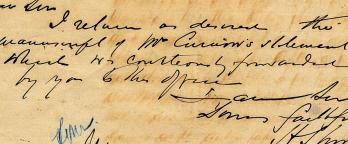 Sir
I return as desired the
manuscript of Mr Curnow's statement
which was courteously forwarded
by you to this office
I am Sir
Yours faithf